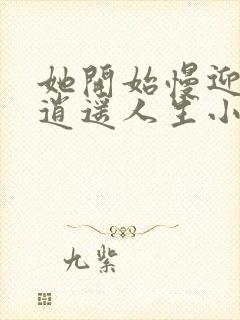 她開始慢迎
逍遥人生小
九紫